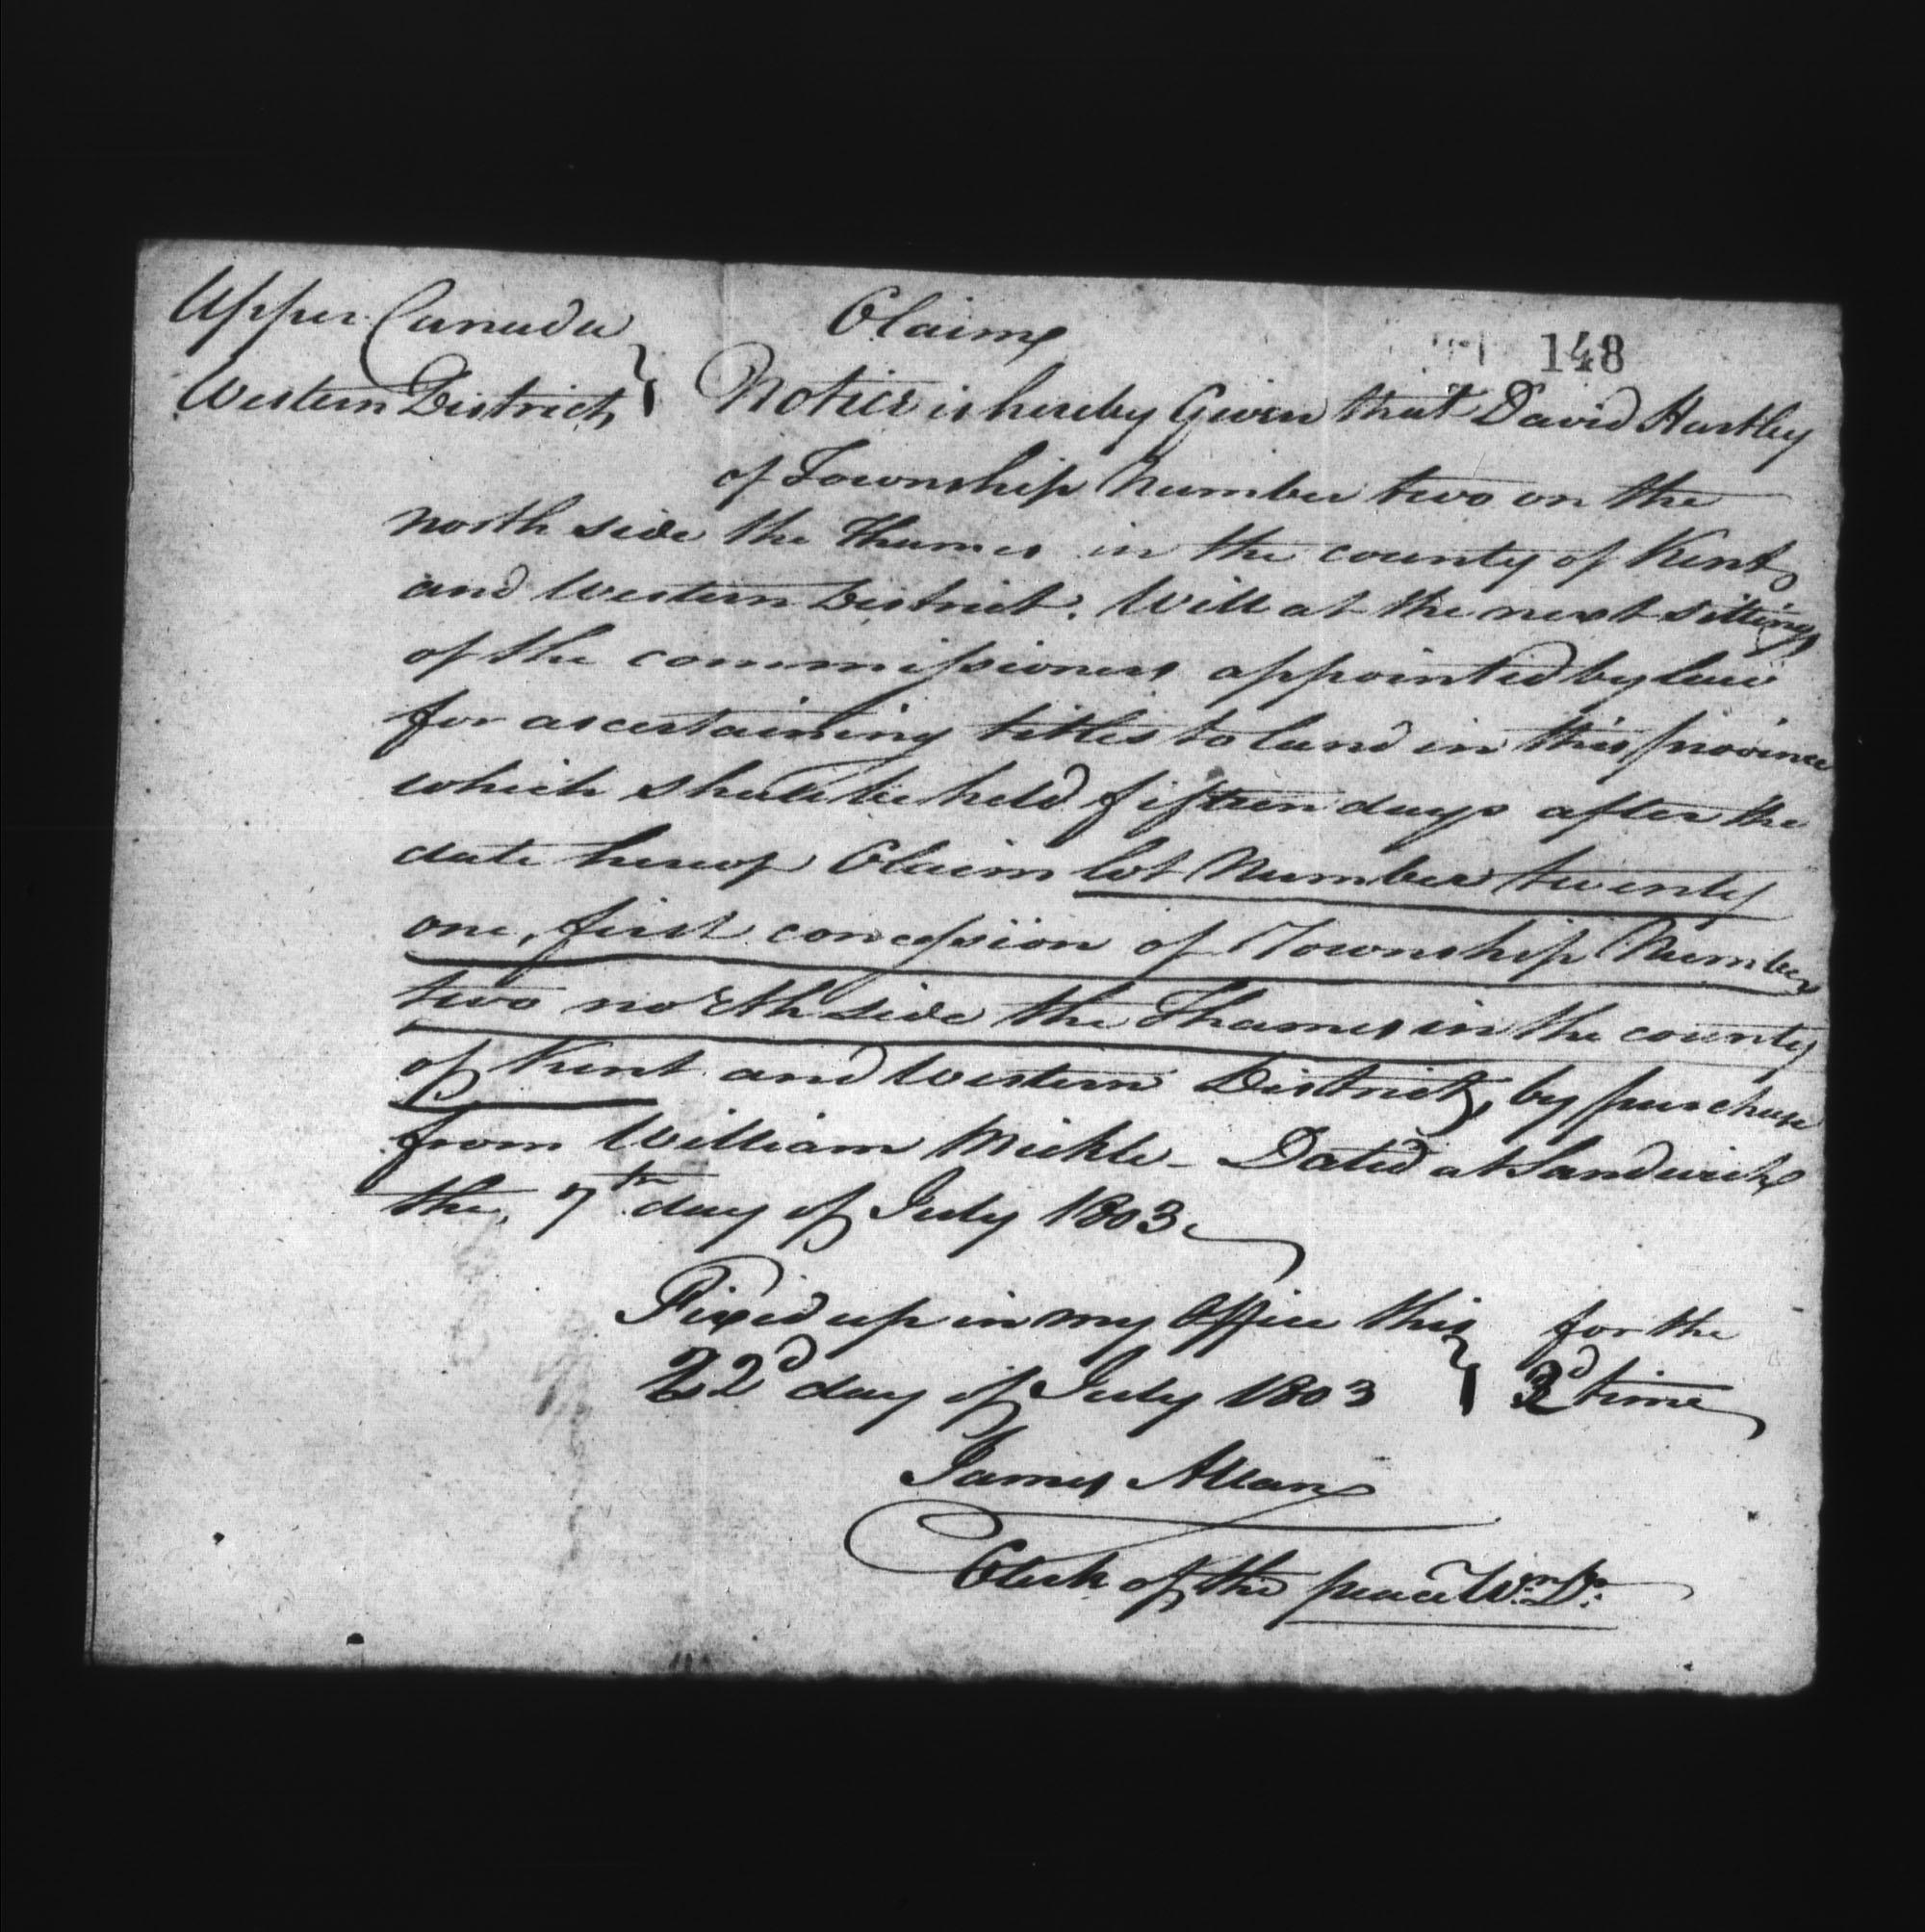 Upper Canada
Western District
Claim
148
Notice is hereby Given that David Hartley
of Township Number two on the
north side the Thames in the county of Kent
and Western District. Will at the next sitting
of the commissioners appointed by law
for ascertaining titles to land in this province
which shall be held fifteen days after the
date hereof Claim lot Number twenty
one, first concession of Township Number
two north side the Thames in the county
of Kent and Western District, by purchase
from William Mickle - Dated at Sandwich
the, 7th day of July 1803.
Fixed up in my Office this
22d day of July 1803
for the
3d time
James Allan
Clerk of the peace Wn. Dt.